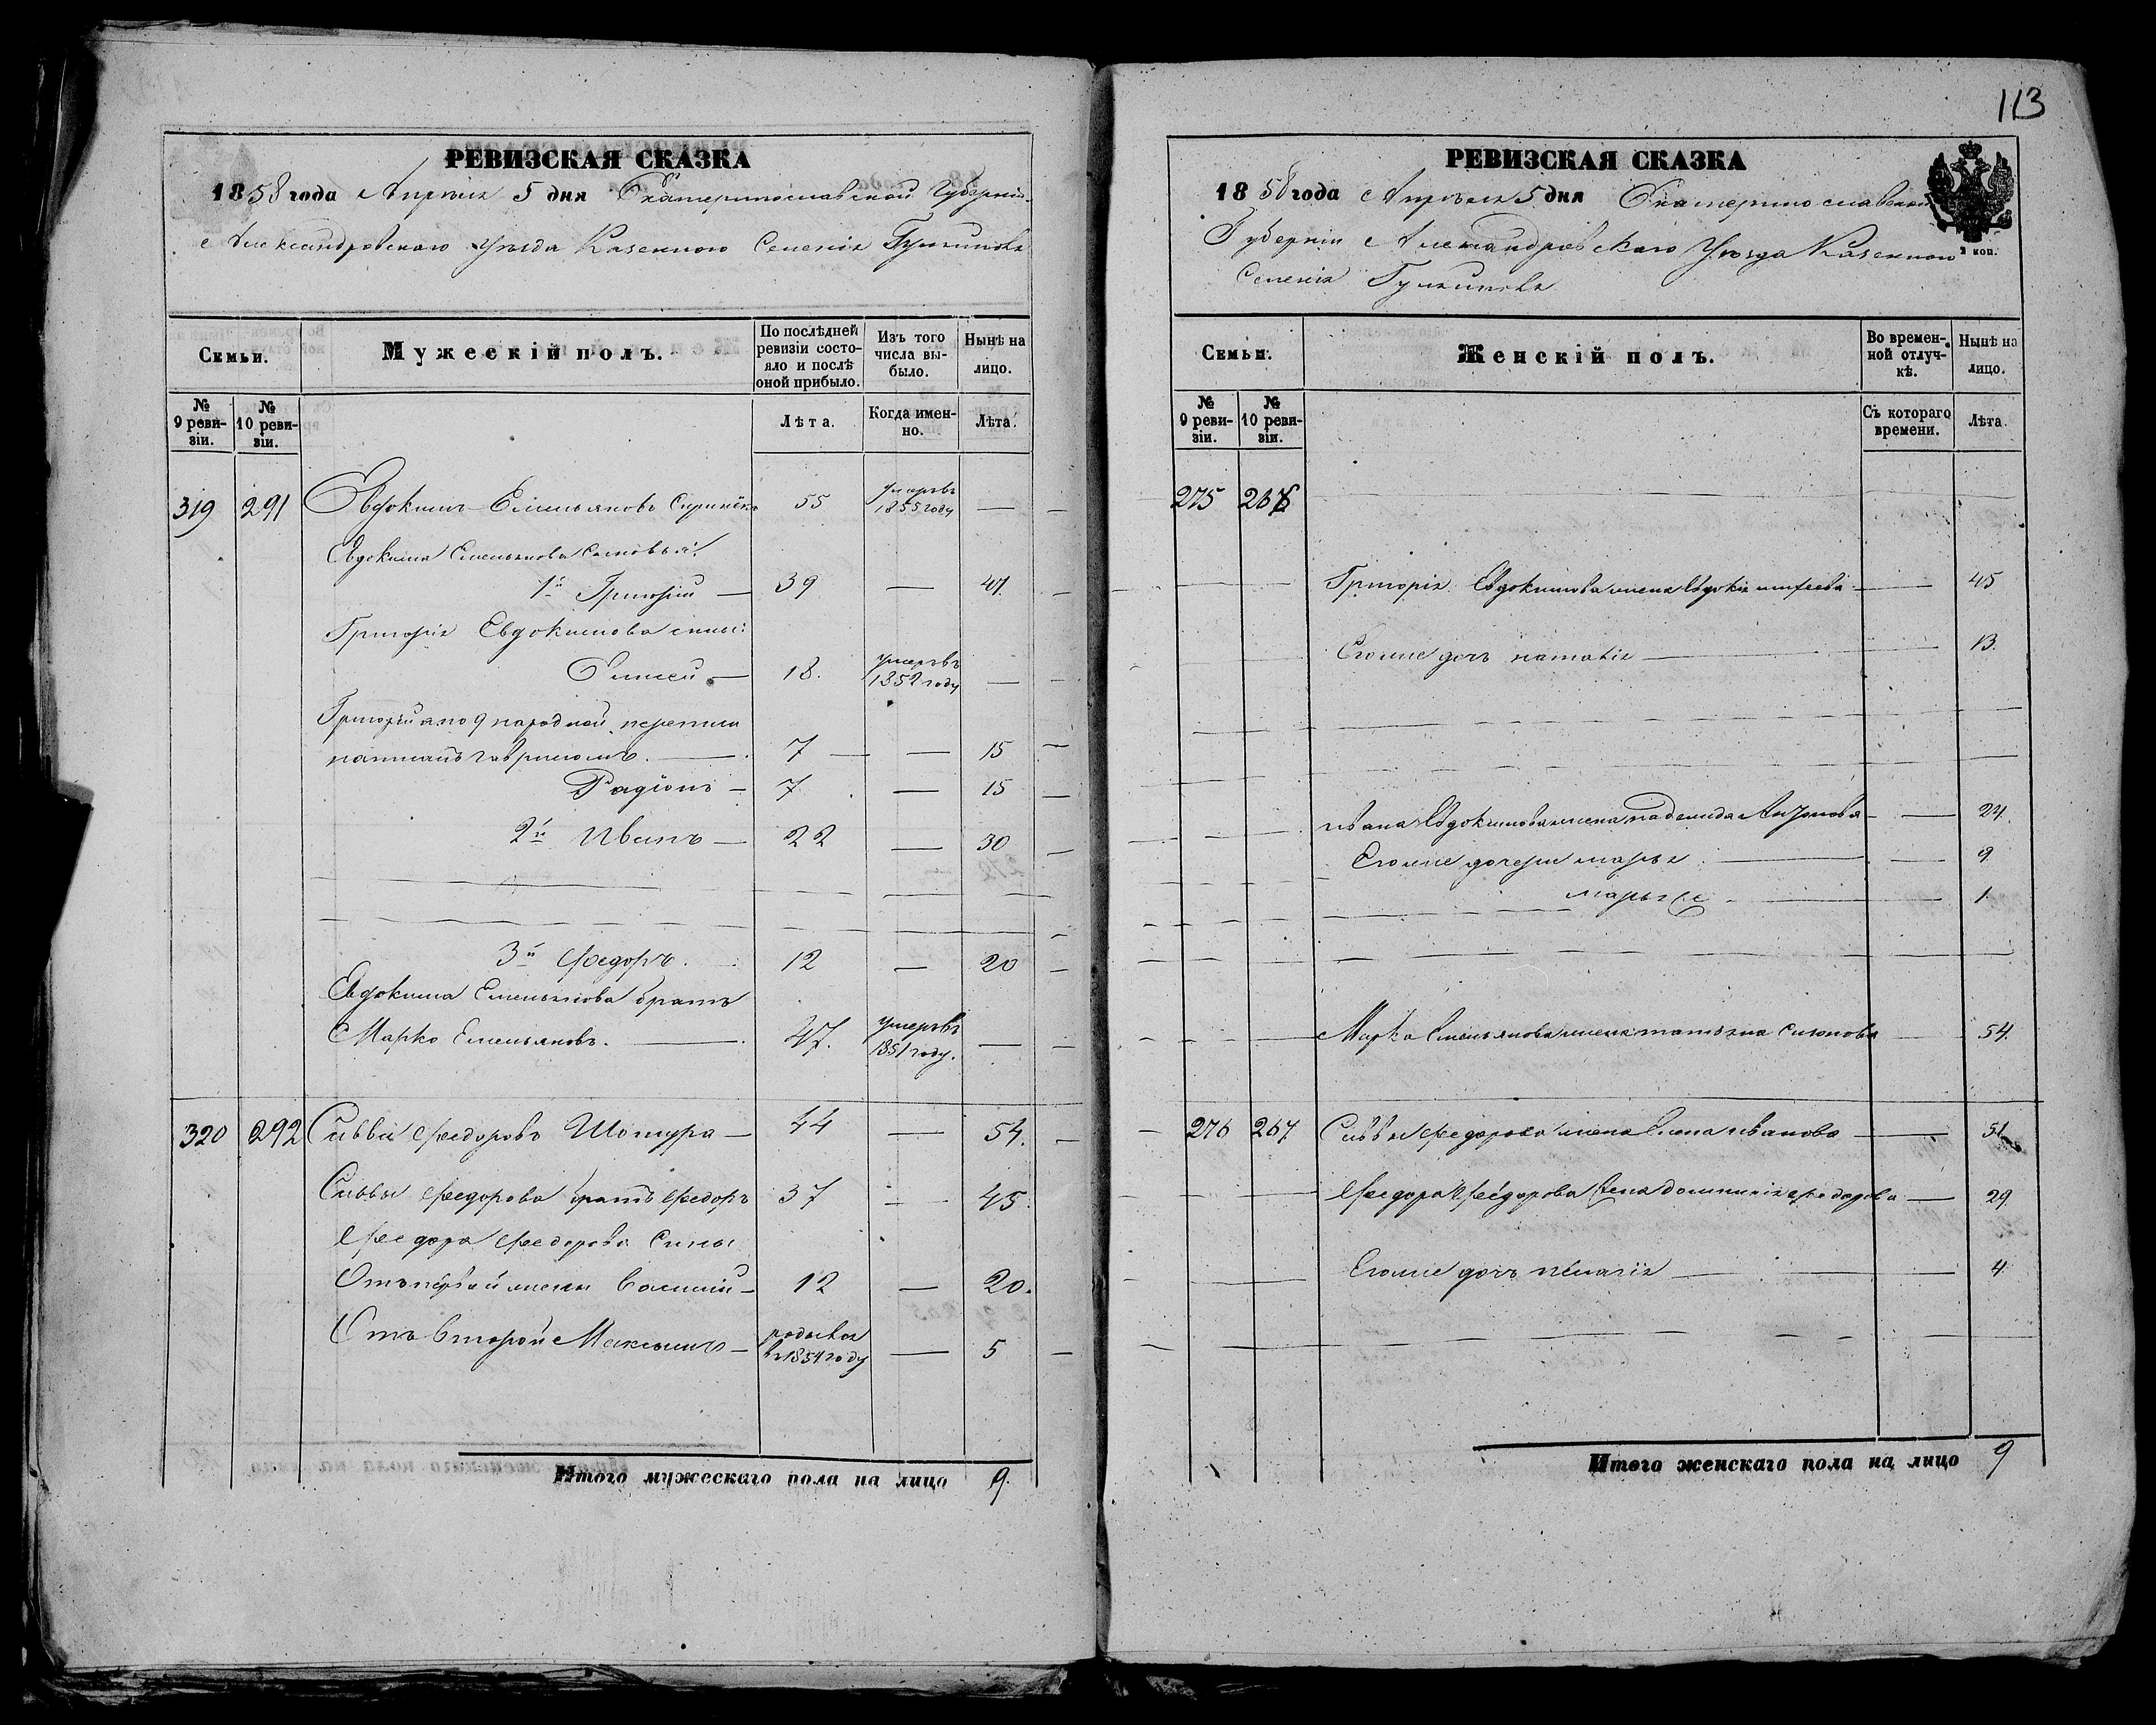 113
РЕВИЗСКАЯ СКАЗКА
1858 года Апреля 5 дня Екатеринославской Губернии
Александровскаго Уезда Казеннаго Селенія
Семьи.
Мужескій полъ.
По послѣдней ревизіи состояло и послѣ оной прибыло.
Изъ того числа выбыло.
Нынѣ на лицо.
№ 9 ревизіи.
№ 10 ревизіи.
Лѣта.
Когда именно.
Лѣта.
319 291 Евдокимъ Емельяновъ 55 умеръ въ 1855 году —
Евдокима Емельянова сыновья:
1й Григорій — 39 — 47.
Григорія Евдокимова сыны:
Елисей — 18. умеръ въ 1852 году —
Григорій а по 9 народной переписи
написанъ Гавриломъ. — 7 — — 15
Радіонъ — 7 — 15
2й Иванъ — 22 — 30
3й Федоръ. 12 — 20
Евдокима Емельянова братъ
Марко Емельяновъ. — 47. умеръ въ 1851 году. —
320 292 Савва Федоровъ Шопура — 44 — 54.
Саввы Федорова братъ Федоръ 37 — 45.
Федора Федорова Сыны
Отъ первой жены Василій — 12 — 20.
Отъ второй Максимъ — родился въ 1854 году — 5
Итого мужескаго пола на лицо 9.
РЕВИЗСКАЯ СКАЗКА
1858 года Апреля 5 дня Екатеринославской
Губерніи Александровскаго Уезда Казеннаго
Селенія
2 коп.
Семьи.
Женскій полъ.
Во временной отлучкѣ.
Нынѣ на лицо.
№ 9 ревизіи.
№ 10 ревизіи.
Съ котораго времени.
Лѣта.
275 266
Григорія Евдокимова жена Евдокія — 45
Егоже дочь Наталія — 13.
Ивана Евдокимова жена Надежда — 24.
Егоже дочери Марья — 9
Марья 2е — 1.
Марка Емельянова жена Татьяна — 54.
276 267 Саввы Федорова жена Елена Иванова — 51
Федора Федорова жена Домникія Федорова — 29.
Егоже дочь Пелагія — 4
Итого женскаго пола на лицо 9